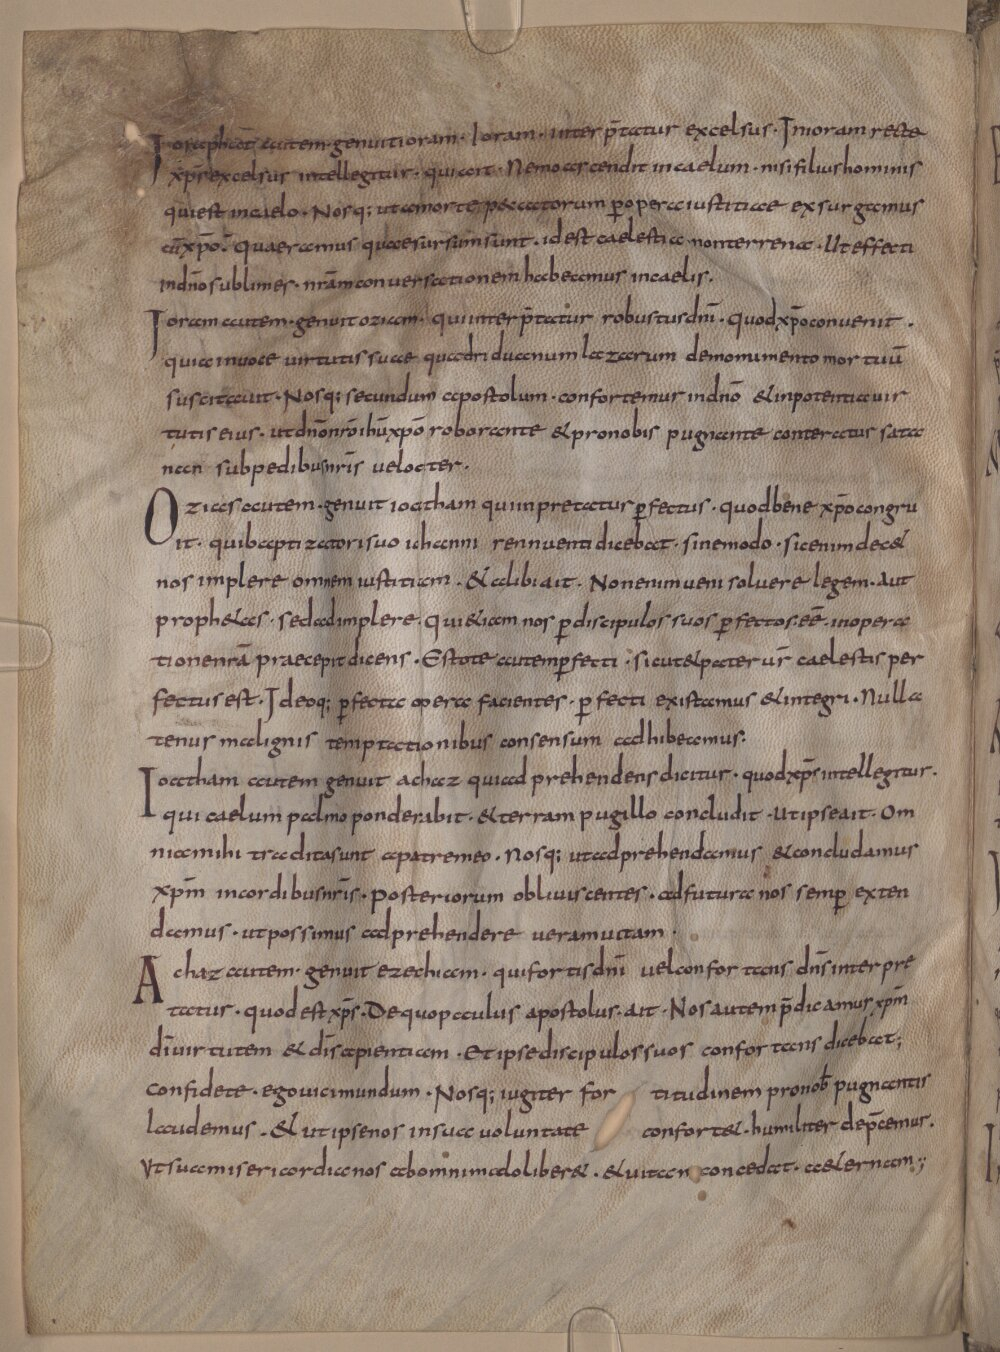 Iosaphat autem genuit ioram. Ioram. interp̄tatur excelsus. In ioram recte
xp̄s excelsus intellegitur. qui ait. Nemo ascendit in caelum. nisi filius hominis
qui est in caelo. Nosq; ut a morte peccatorum ꝑ opera iustitiae exsurgamus
cū xp̄o. Quaeramus quae sursum sunt. id est caelestia non terrena. Ut effecti
in dn̄o sublimes. nr̄am conversationem habeamus in caelis.
Ioram autem. genuit oziam. qui interp̄tatur robustus dn̄i. Quod xp̄o convenit.
quia in voce virtutis suae quadriduanum lazarum de monumento mortuū
suscitavit. Nosq; secundum apostolum. confortemur in dn̄o & in potentia vir
tutis eius. ut dn̄o nr̄o ih̄u xp̄o roborante & pro nobis pugnante conteratur sata
nan sub pedibus nr̄is velociter.
Ozias autem. genuit ioatham qui inpretatur ꝑfectus. quod bene xp̄o congru
it. qui baptizatori suo iohanni rennuenti dicebat. sine modo. sic enim dec&
nos implere omnem iustitiam. & alibi ait. Non enim veni solvere legem. aut
proph&as. sed adimplere. Qui &iam nos ꝑ discipulos suos ꝑfectos eē. in opera
tione nr̄a praecepit dicens. Estote autem ꝑfecti. sicut & pater ur̄ caelestis per
fectus est. Ideoq; ꝑfecta opera facientes. ꝑfecti existamus & integri. Nulla
tenus malignis temptationibus consensum adhibeamus.
Ioatham autem genuit achaz quiad prehendens dicitur. quod xp̄s intellegitur.
qui caelum palmo ponderabit. & terram pugillo concludit. Ut ipse ait. Om
nia mihi tradita sunt a patre meo. Nosq; ut adprehendamus & concludamus
xp̄m in cordibus nr̄is. Posteriorum obliviscentes. ad futura nos semꝑ exten
damus. ut possimus adprehendere veram vitam.
Achaz autem. genuit ezechiam. qui fortis dn̄i vel confortans dn̄s interpre
tatur. quod est xp̄s. De quo paulus apostolus. ait. Nos autem p̄dicamus xp̄m
dī virtutem & dī sapientiam. Et ipse discipulos suos confortans dicebat;
Confidete. ego vici mundum. Nosq; iugiter for titudinem pro nob̄ pugnantis
laudemus. & ut ipse nos in sua voluntate confort&. humiliter dep̄cemur.
Ut sua misericordia nos ab omni malo liber&. & vitam concedat. a&ernam;